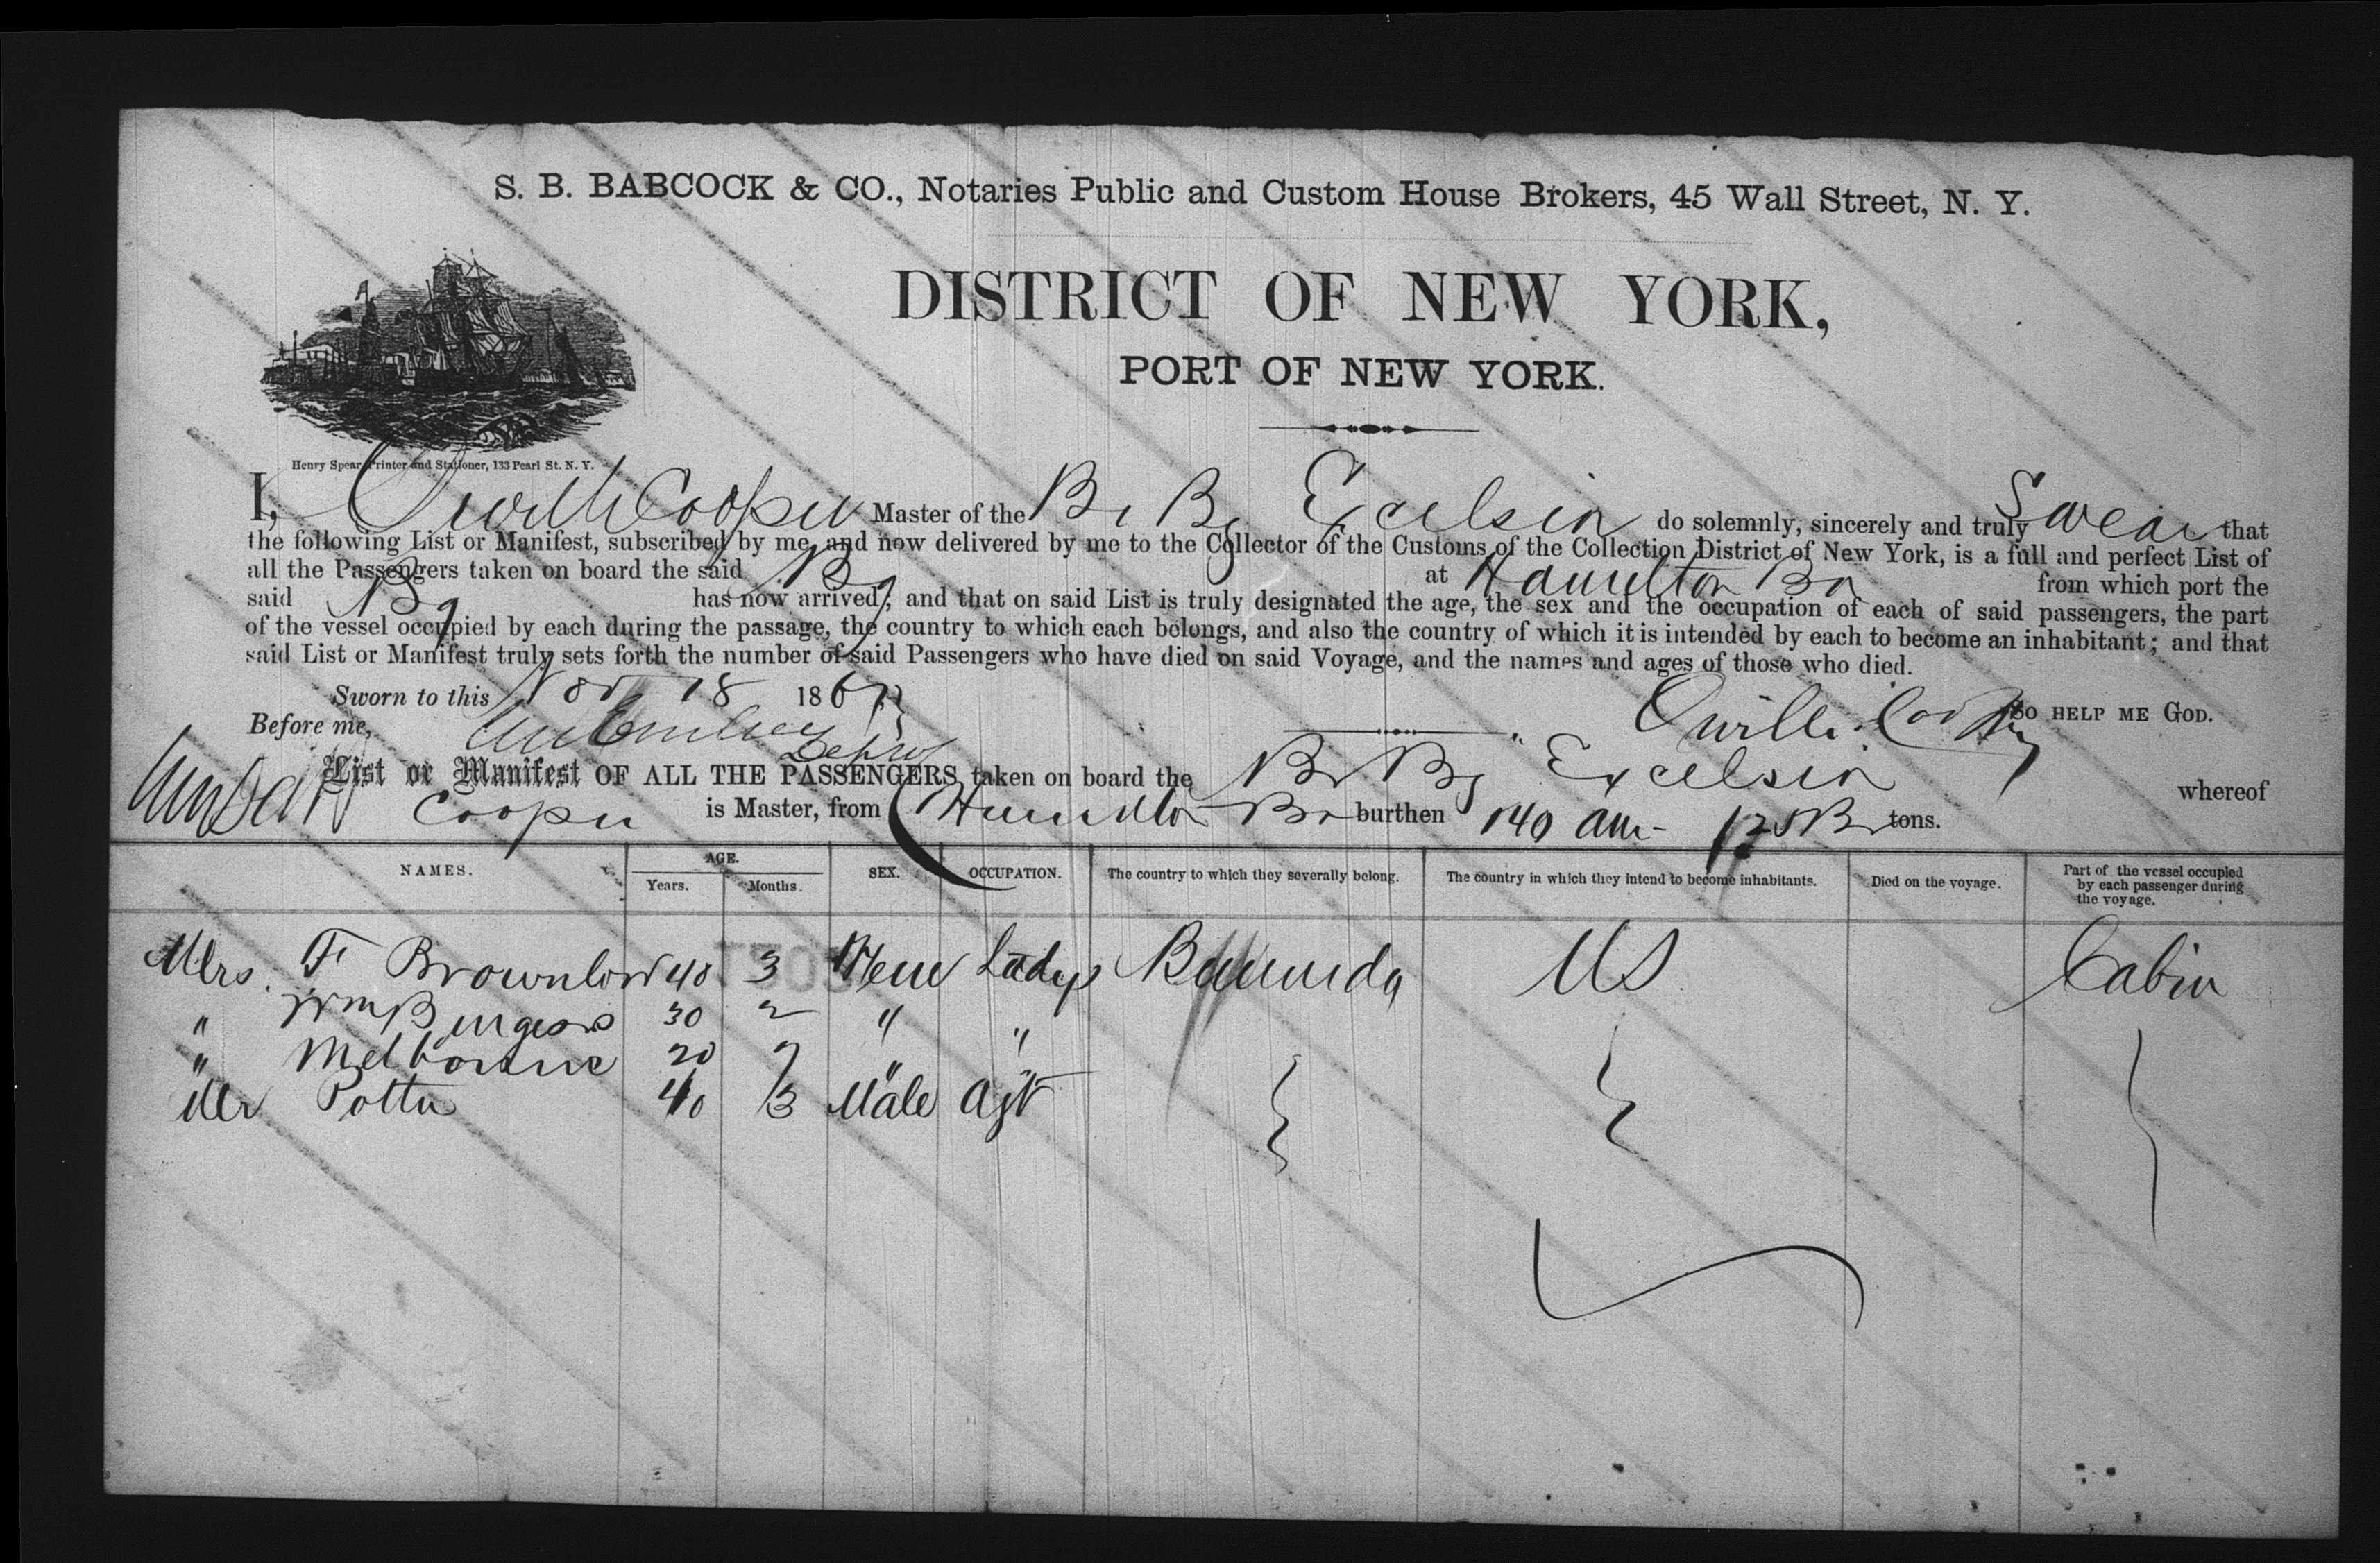 S. B. BABCOCK & CO., Notaries Public and Custom House Brokers, 45 Wall Street, N. Y.
DISTRICT OF NEW YORK,
PORT OF NEW YORK.
Henry Spear Printer and Stationer, 133 Pearl St. N. Y.
I, Orville Cooper Master of the Br Bg Excelsior do solemnly, sincerely and truly Swear that
the following List or Manifest, subscribed by me, and now delivered by me to the Collector of the Customs of the Collection District of New York, is a full and perfect List of
all the Passengers taken on board the said Bg at Hamilton Ba from which port the
said Bg has now arrived; and that on said List is truly designated the age, the sex and the occupation of each of said passengers, the part
of the vessel occupied by each during the passage, the country to which each belongs, and also the country of which it is intended by each to become an inhabitant; and that
said List or Manifest truly sets forth the number of said Passengers who have died on said Voyage, and the names and ages of those who died.
Sworn to this Nov 18 1867 SO HELP ME GOD.
Before me,
List or Manifest OF ALL THE PASSENGERS taken on board the Br Bg Excelsior whereof
Cooper is Master, from Hamilton burthen 140 tons.
NAMES. AGE. Years. Months. SEX. OCCUPATION. The country to which they severally belong. The country in which they intend to become inhabitants. Died on the voyage. Part of the vessel occupied by each passenger during the voyage.
Mrs. F Brownlow 40 3 Ladys Bermuda US Cabin
" Wm Burgess 30 2 " "
" Melbourne 20 7 " "
Mr Potter 40 3 Male Agt